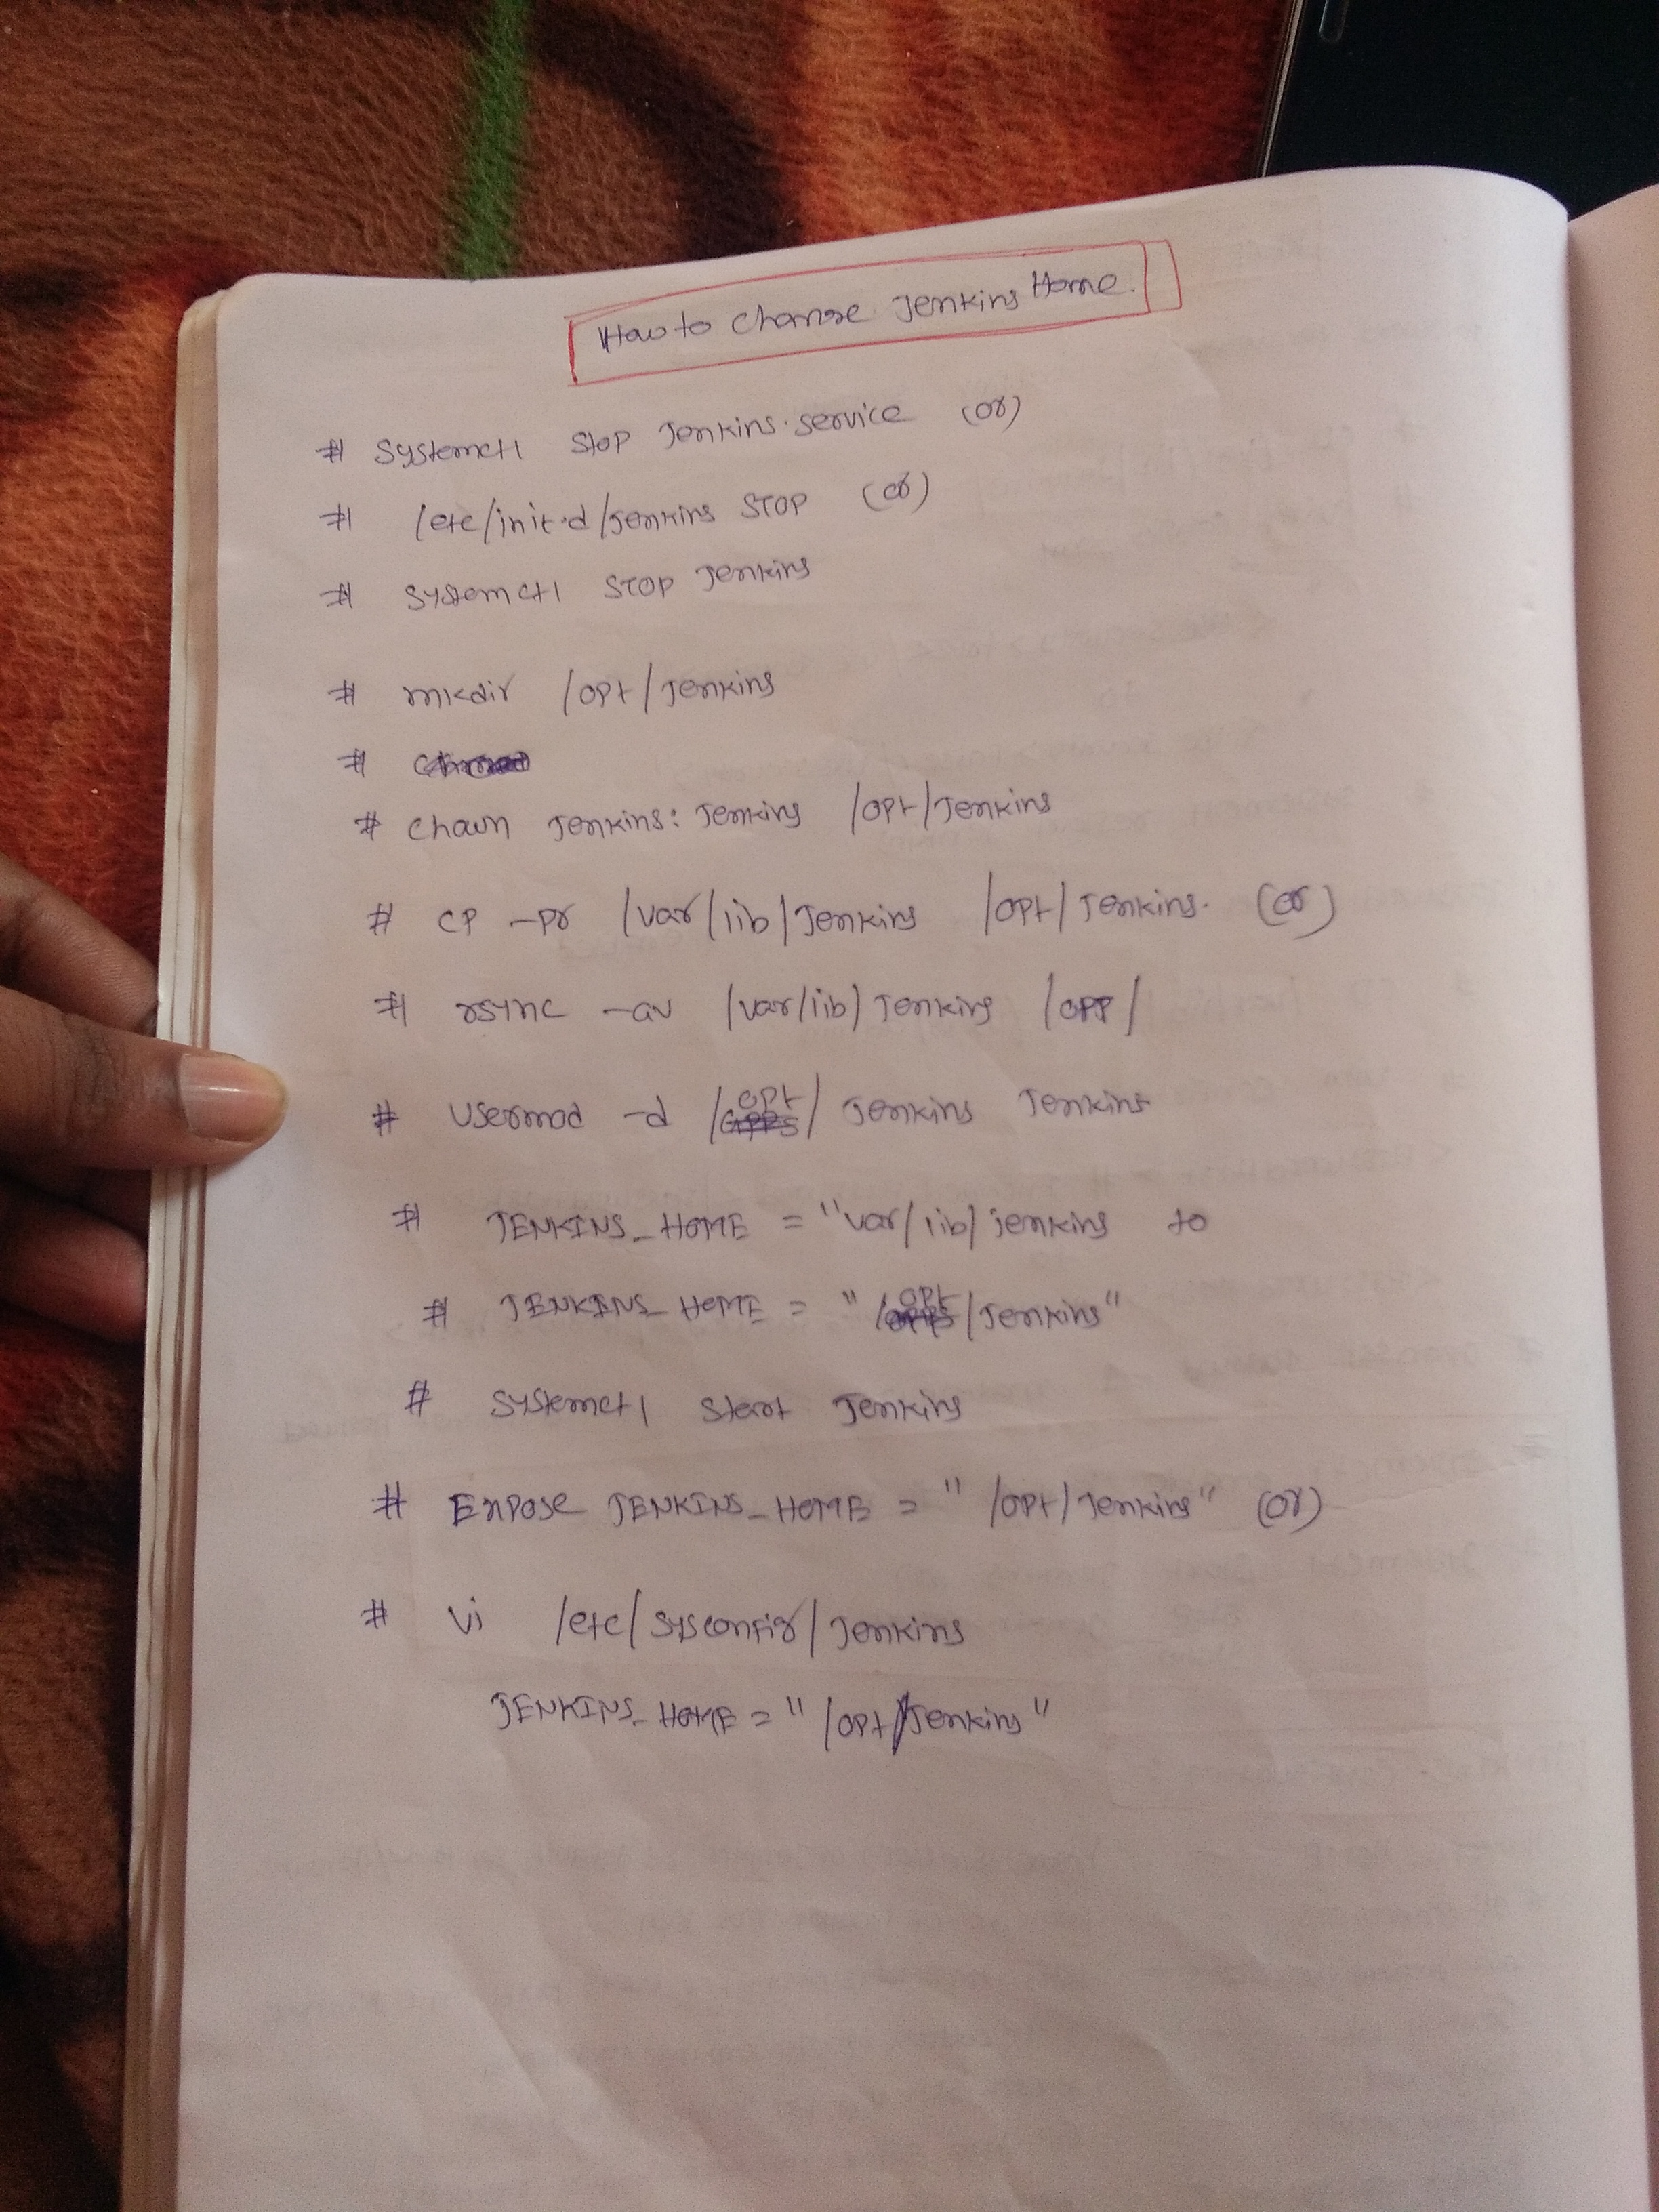 How to change Jenkins Home.
# systemctl stop Jenkins.service (or)
# /etc/init.d/Jenkins STOP (or)
# systemctl STOP Jenkins
# mkdir /opt/Jenkins
#
# chown Jenkins: Jenkins /opt/Jenkins
# cp -pr /var/lib/Jenkins /opt/Jenkins. (or)
# rsync -av /var/lib/Jenkins /opp/
# usermod -d /opt/ Jenkins Jenkins
# JENKINS_HOME = "var/lib/jenkins to
# JENKINS_HOME = "/opt/Jenkins"
# systemctl start Jenkins
# Expose JENKINS_HOME = "/opt/Jenkins" (or)
# vi /etc/sysconfig/Jenkins
JENKINS_HOME = "/opt/Jenkins"